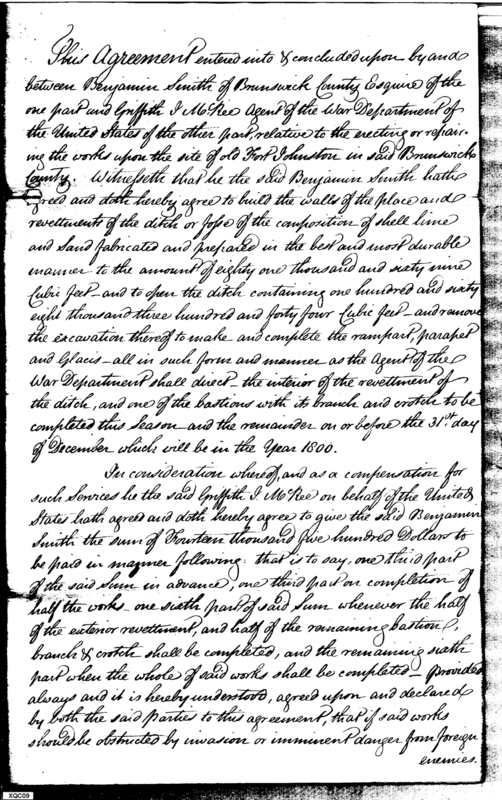 This Agreement entered into & concluded upon by and
between Benjamin Smith of Brunswick County Esquire of the
one part and Griffith J McRee Agent of the War Department of
the United States of the other part, relative to the erecting or repair-
ing the works upon the site of old Fort Johnston in said Brunswick
County. Witnesseth that he the said Benjamin Smith hath
agreed and doth hereby agree to build the walls of the place and
revettment of the ditch or fosse of the composition of shell lime
and Sand fabricated and prepared in the best and most durable
manner to the amount of eighty one thousand and sixty nine
Cubic feet – and to open the ditch containing one hundred and sixty
eight thousand three hundred and forty four Cubic feet – and remove
the excavation thereof to make and complete the rampart, parapet
and Glacis – all in such form and manner as the Agent of the
War Department shall direct – the interior of the revettment of
the ditch, and one of the bastions with its branch and crotch to be
completed this Season and the remainder on or before the 31st day
of December which will be in the Year 1800.
In consideration whereof, and as a compensation for
such Services he the said Griffith J McRee on behalf of the United
States hath agreed and doth hereby agree to give the said Benjamin
Smith the sum of Fourteen thousand five hundred Dollars to
be paid in manner following: that is to say, one third part
of the said Sum in advance, one third part on completion of
half the works – one sixth part of said Sum whenever the half
of the exterior revettment, and half of the remaining bastion,
branch & crotch shall be completed, and the remaining sixth
part when the whole of said works shall be completed – Provided
always and it is hereby understood, agreed upon and declared
by both the said parties to this agreement, that if said works
should be obstructed by invasion or imminent danger from foreign
enemies.
XQC09